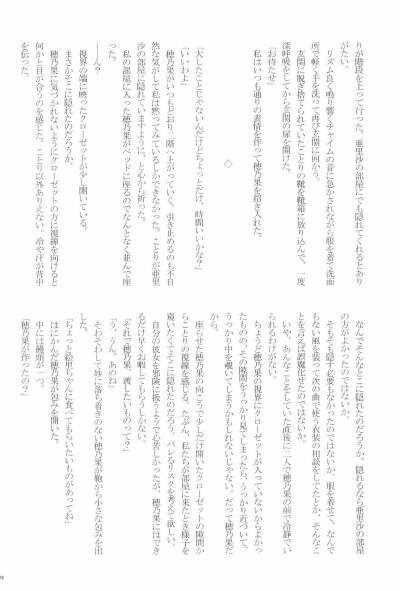 りが階段を上って行った。亜里沙の部屋にでも隠れてくれるとあり
がたい。
リズム良く鳴り響くチャイムの音に急かされながら服を着て洗面
所で軽く手を洗って再び玄関に向かう。
玄関に脱ぎ捨てられていたことりの靴を靴箱に放り込んで、一度
深呼吸をしてから玄関の扉を開けた。
「お待たせ」
私はいつも通りの表情を作って穂乃果を招き入れた。
◇
「大したことじゃないんだけどちょっとだけ、時間いいかな?」
「いいわよ」
穂乃果がいつもどおり二階へ上がっていく。引き止めるのも不自
然な気がして私は黙ってみているしかできなかった。ことりが亜里
沙の部屋に隠れていますように、と心から祈った。
私の部屋に入った穂乃果がベッドに座るのでなんとなく並んで座
った。
――ん?
視界の端に映ったクローゼットが少し開いている。
まさかそこに隠れたのだろうか。
穂乃果に気づかれないようにクローゼットの方に視線を向けると
何かと目が合うのを感じた。ことり以外ありえない。冷や汗が背中
を伝った。
なんでそんなとこに隠れたのだろうか、隠れるなら亜里沙の部屋
の方がよかったのではないか。
そもそも隠す必要もなかったのではないか。服を着せて、なんで
もない風を装って次の曲で使う衣装の相談をしてたとか、そんなこ
とを言えば誤魔化せたのではないか。
いや、あんなことをしていた直後に二人で穂乃果の前で冷静でい
られるわけがない。
ちょうど穂乃果の視界にクローゼットが入っていないからよかっ
たものの、その隙間をうっかり見てしまったら、うっかり近づいて、
うっかり中を覗いてしまうかもしれないじゃない。だって穂乃果だ
から。
座らせた穂乃果の向こうで少しだけ開いたクローゼットの隙間か
らことりの視線を感じる。たぶん、私たちが部屋に来たとき様子を
窺いたくてそこに隠れたのだろう。バレるリスクを考えて欲しい。
自分の彼女を邪険に扱うようで心苦しかったが、穂乃果にはでき
るだけ早くお暇してもらうしかない。
「それで穂乃果、渡したいものって?」
「う、うん。あのね」
そわそわして妙に落ち着きのない穂乃果が鞄から小さな包みを出
した。
「ちょっと絵里ちゃんに食べてもらいたいものがあってね」
はにかんだ穂乃果が包みを開いた。
中には饅頭が一つ。
「穂乃果が作ったの?」